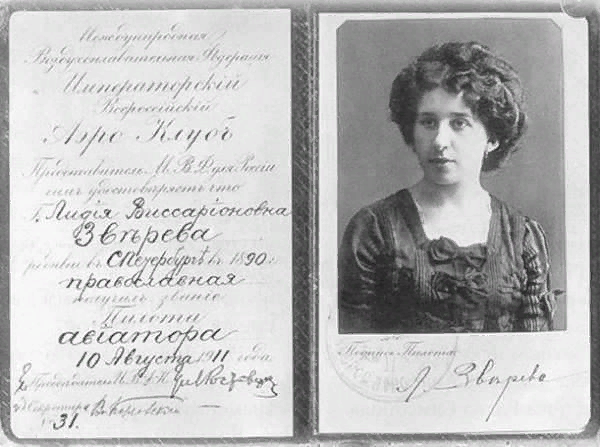 Международная
Воздухоплавательная Федерація
Императорскій
Всероссійскій
Аэро Клубъ
Представитель М. В. Ф. для Россіи
симъ удостовѣряетъ что
Г. Лидія Виссаріоновна
Звѣрева
родивш въ С Петербургѣ въ 1890 г.
православная
получилъ званіе
Пилота
авіатора
10 Августа 1911 года
Секретарь
№ 31.
Подпись Пилота
Л. Звѣрева